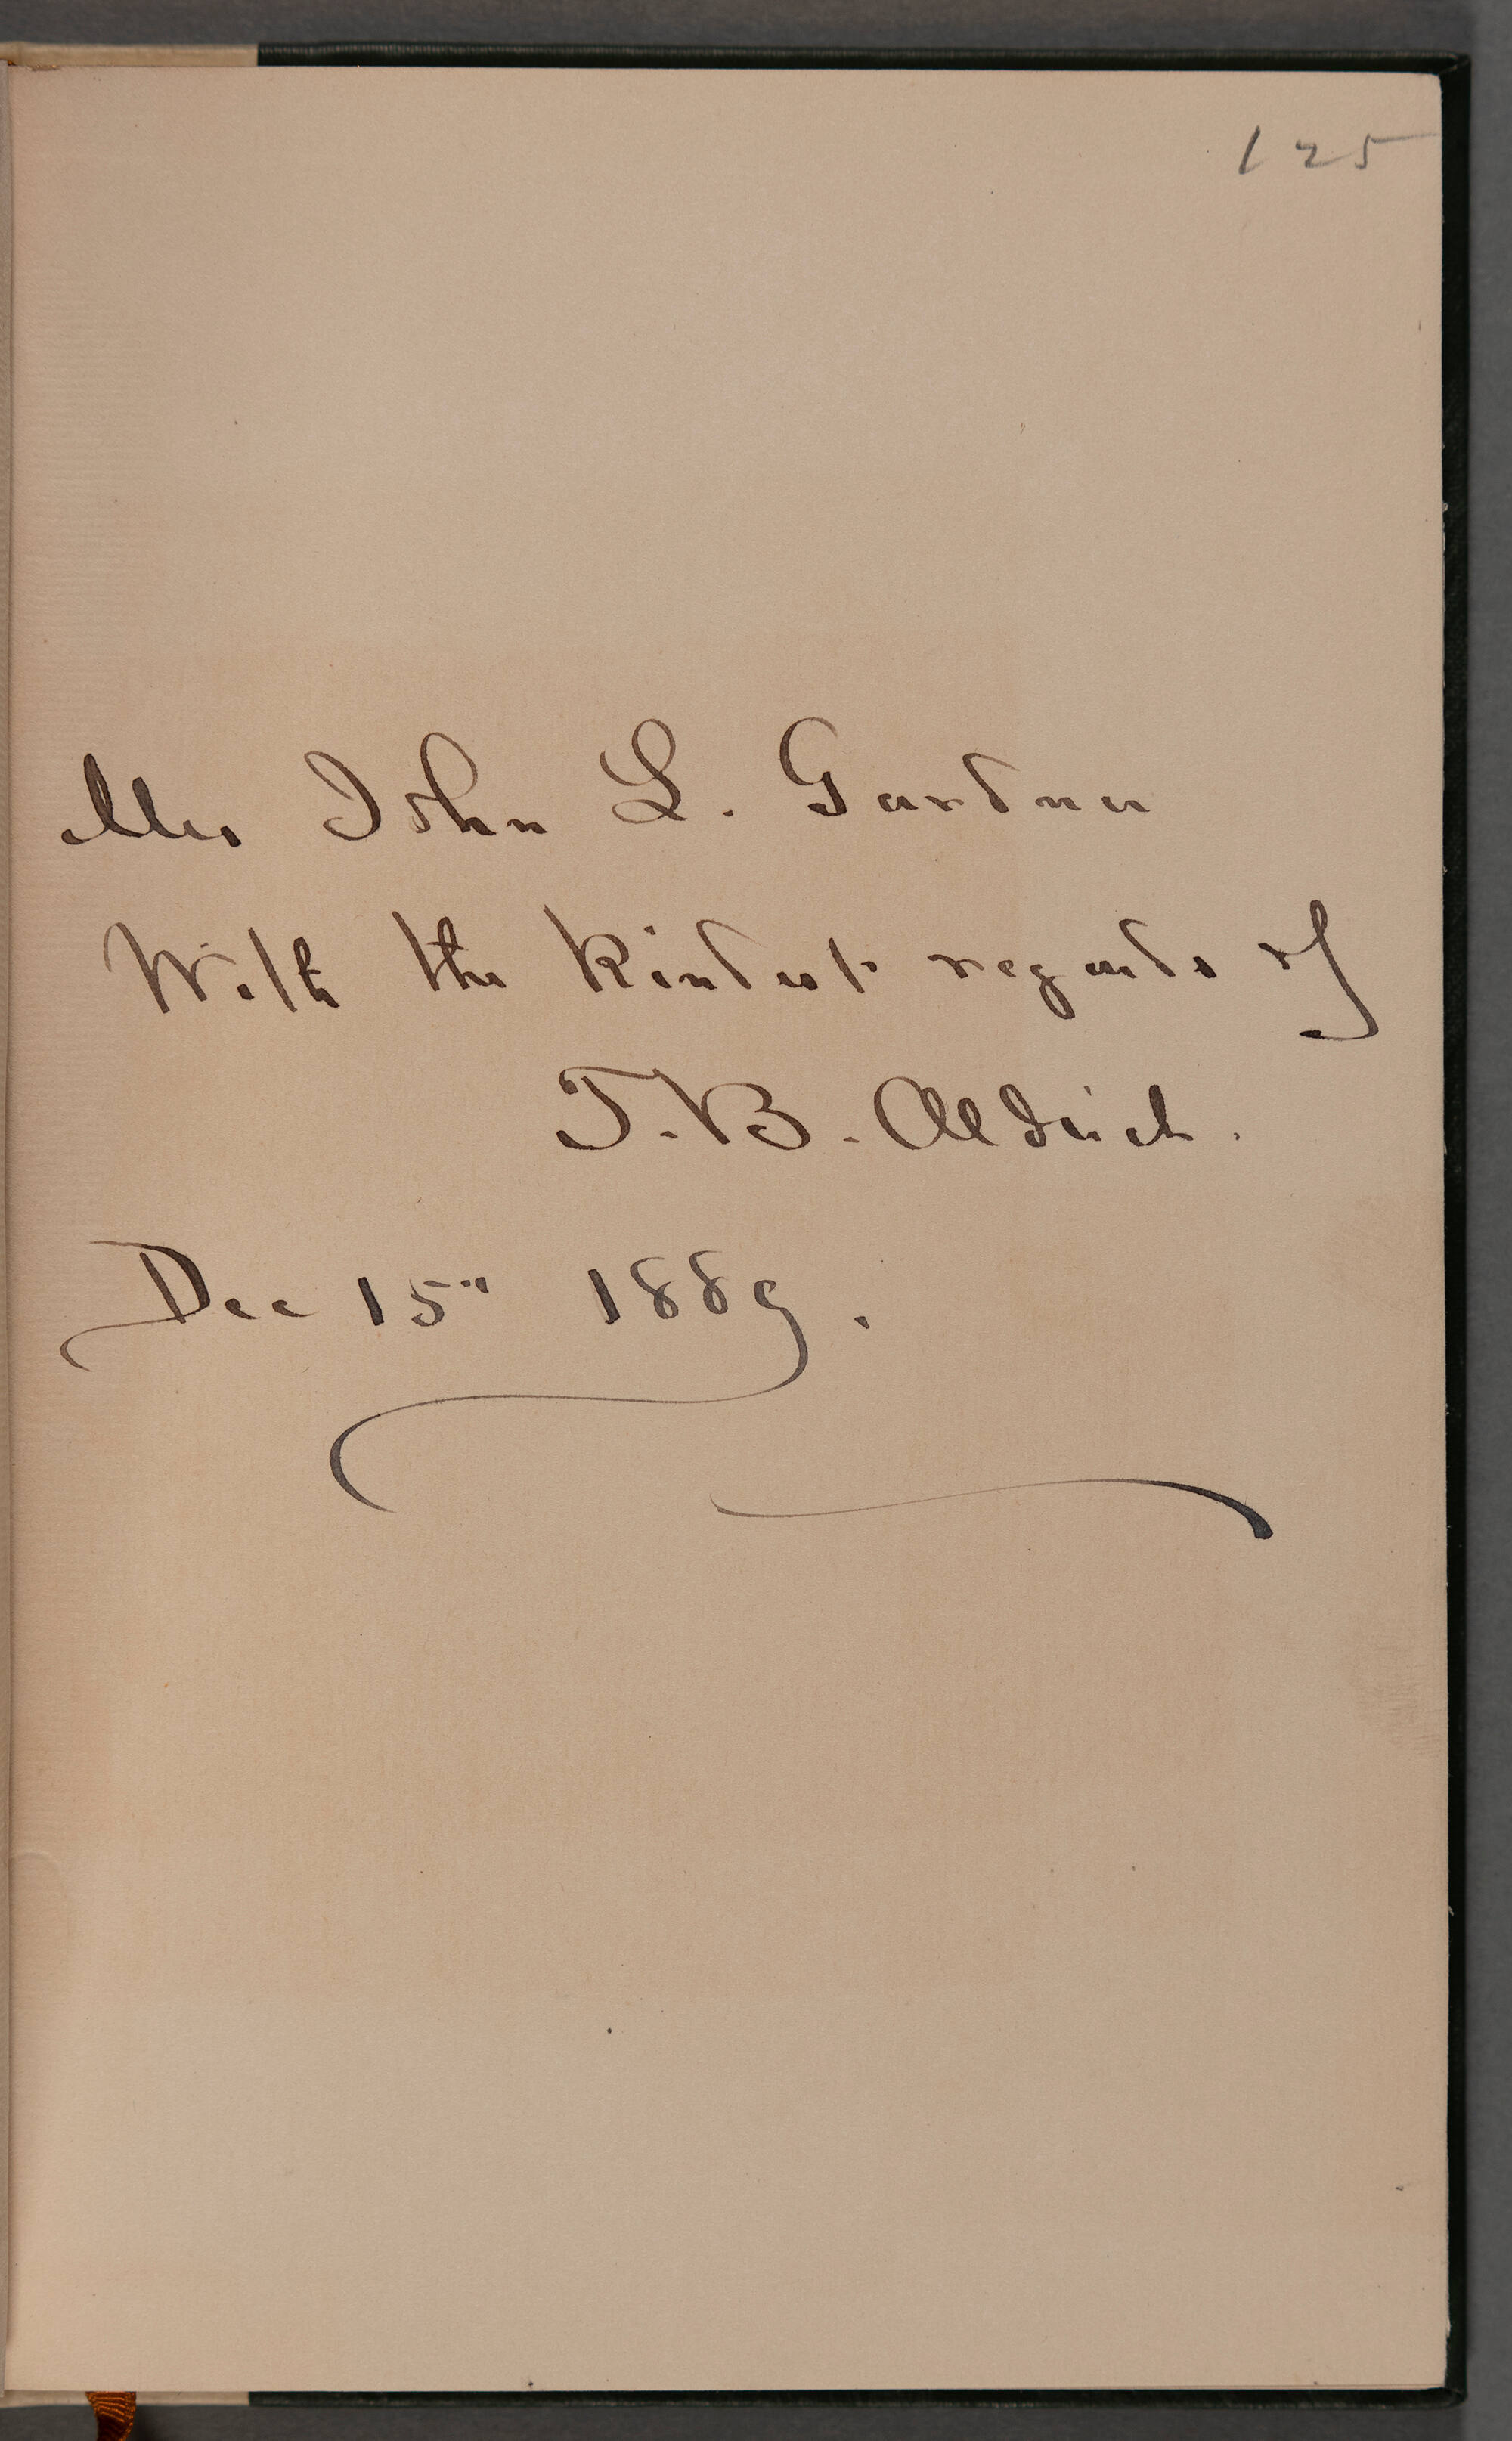 125
Mrs John L. Gardner
With the kindest regards of
T. B. Aldrich.
Dec 15" 1889.